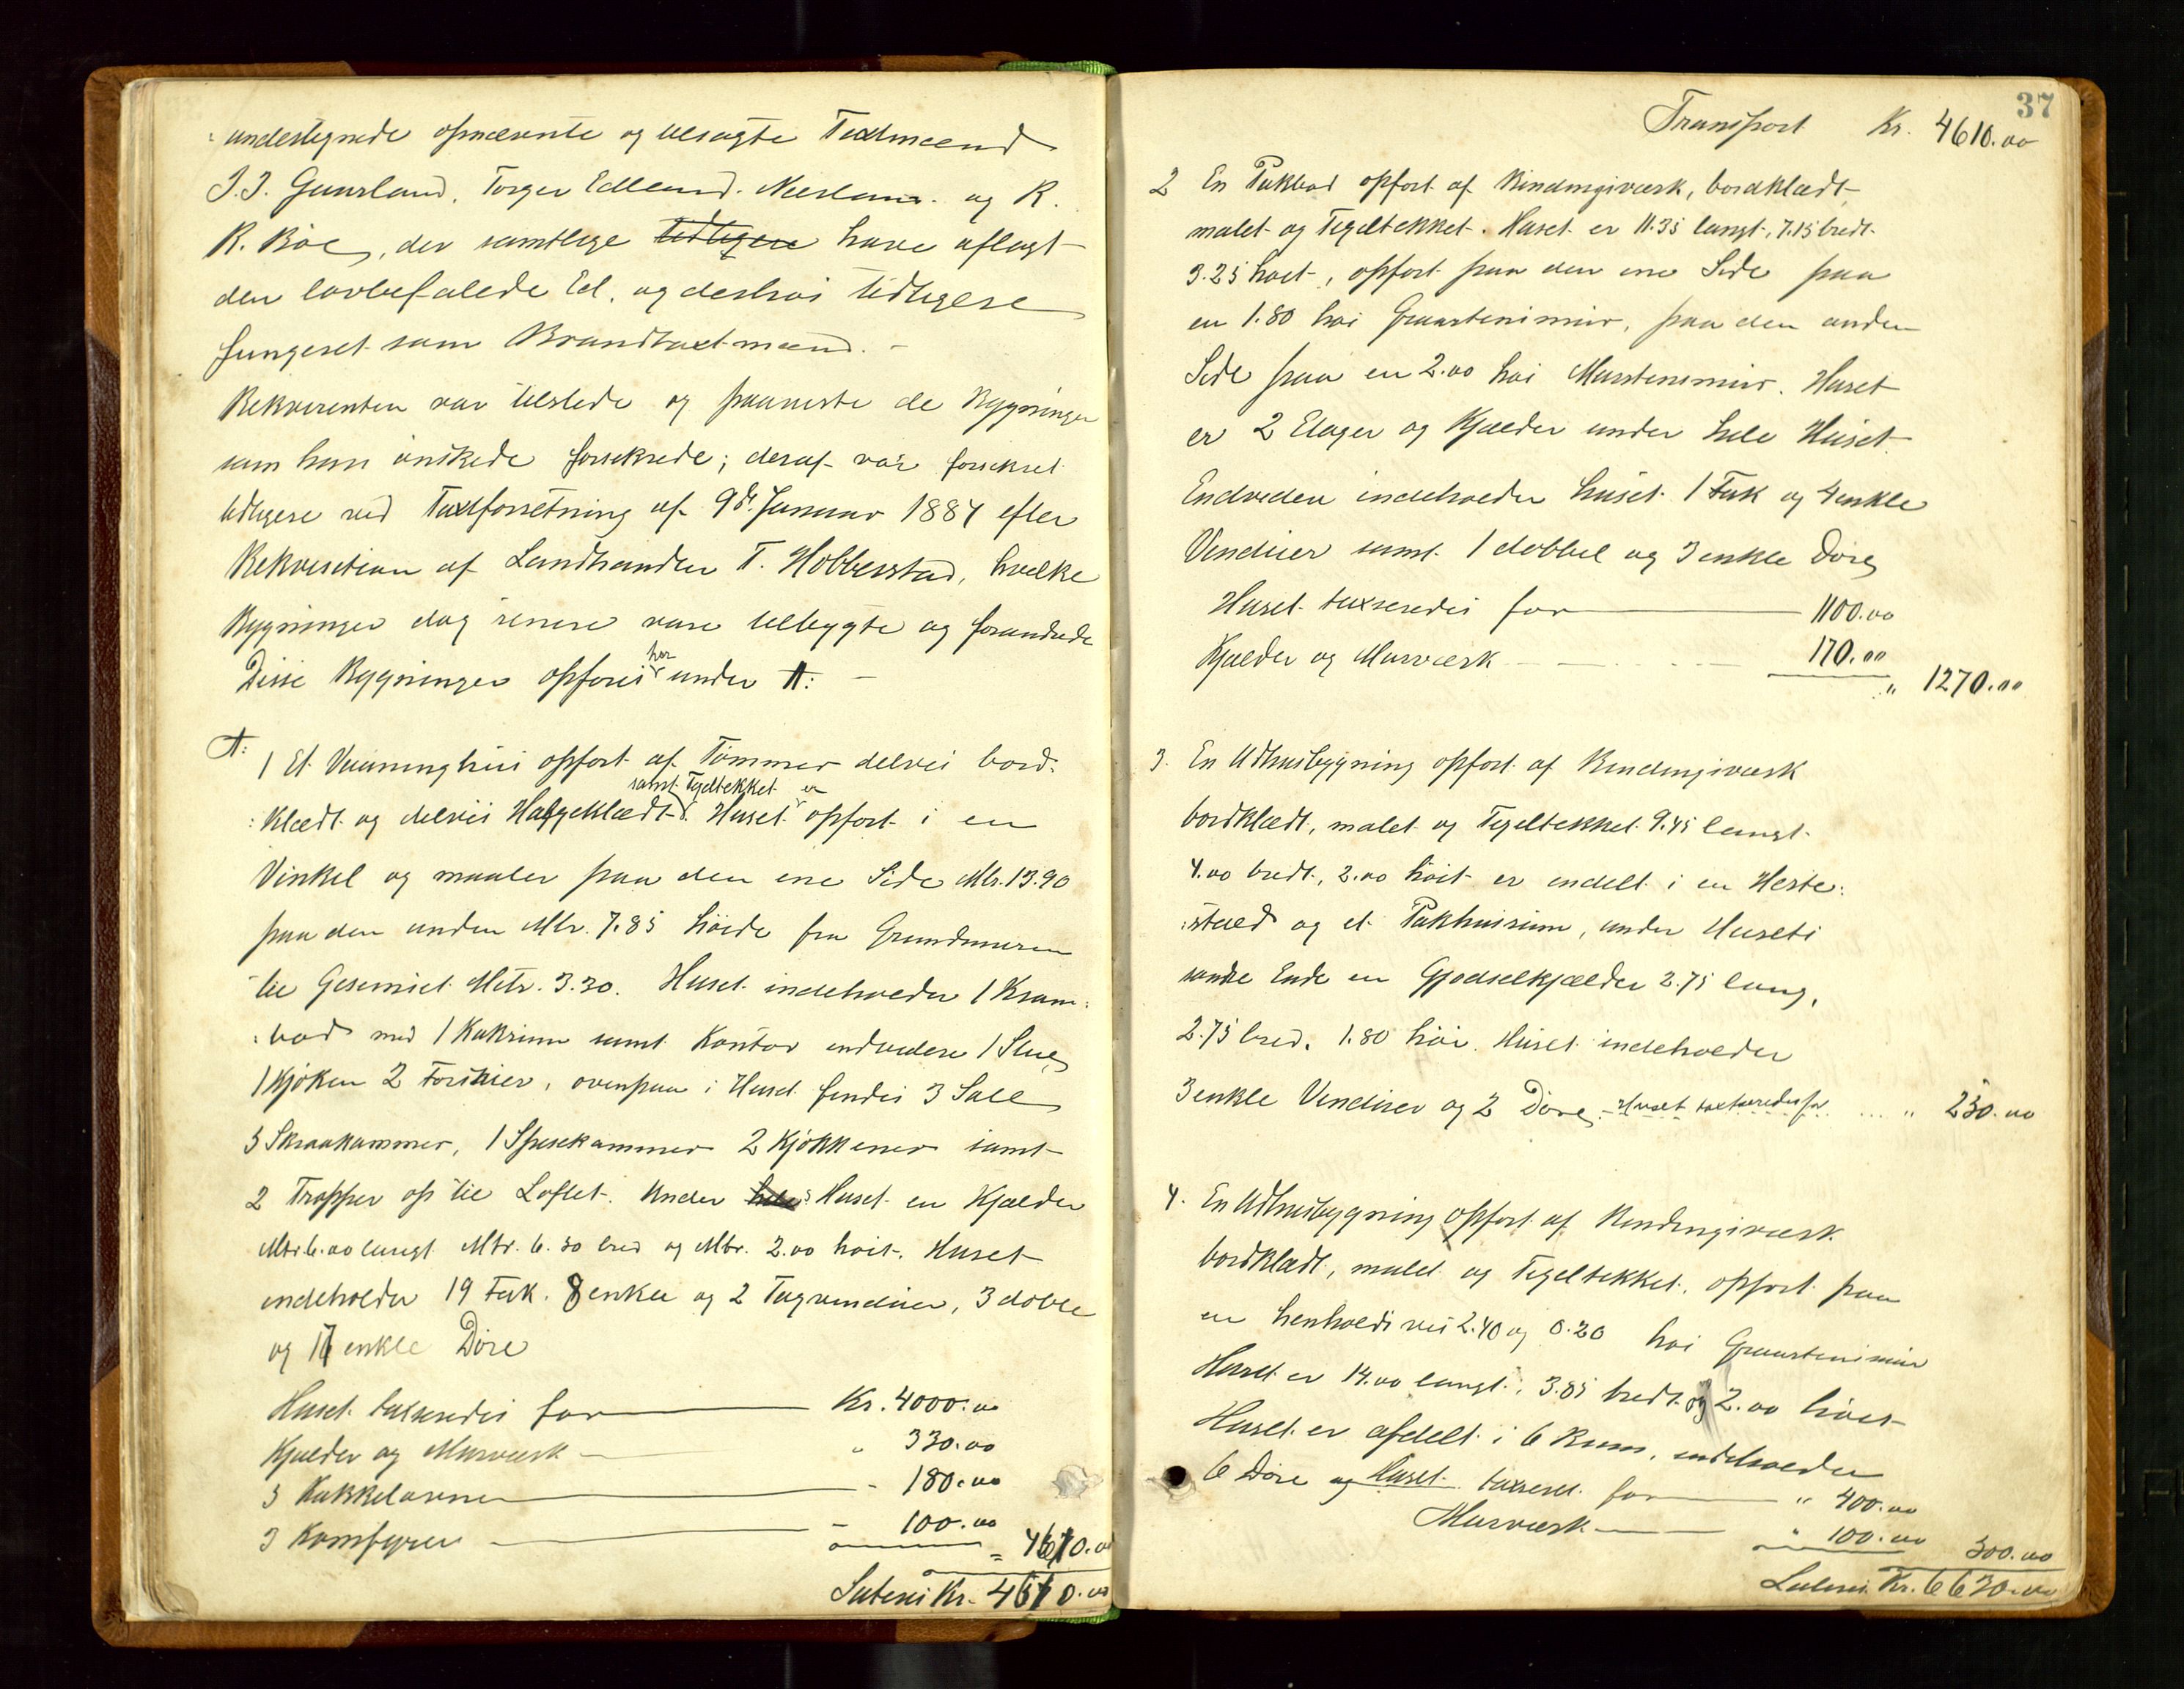 undertegnede opnævnte og tilsagte Taxtmænd
T. T. Gunsland, Torger Edland Næsland og R.
R. Böe, der samtlige tidligere have aflagt
den lovbefalede Ed, og deshoi tidligere
fungeret som Brandtaxtmænd. -
Rekvirenten var tilstede og paaviste de Bygninger
som han önskede forsikrede; deraf var forsikret
tidligere ved Taxtforretning af 9de Januar 1884 efter
Rekvisition af Landhandler T. Hobberstad, hvilke
Bygninger dog senere vare tilbygte og forandrede
Disse Bygninger opföres her under A: -
A:
1 Et Vaaninghus opfört af Tømmer delvis bord:
samt Tegltekket er
:klædt og delvis Halgeklædt. Huset opfört i en
Vinkel og maaler paa den ene Side Mtr. 13.90
paa den anden Mtr. 7.85 höide fra Grundmuren
til Gesemset Metr. 3.30. Huset indeholder 1 Kram:
:bod med 1 Kakrum samt Kontor endvidere 1 Stue
1 Kjöken 2 Forstuer, ovenpaa i Huset findes 3 Sale
3 Skraakammer, 1 Spisekammer 2 Kjökkener samt
2 Trapper op til Loftet. Under hele Huset en Kjælder
Mtr. 6.00 langt Mtr. 6.30 bred og Mtr. 2.00 höit. Huset
indeholder 19 Fak. 8 enkle og 2 Tagvinduer, 3 doble
og 17 enkle Döre
Huset taxseredes for Kr. 4000.00
Kjælder og Murværk " 330.00
3 Kakkelovne - 180.00
3 Komfyrer - 100.00
= 4610.00
Lateris Kr. 4610.00
37
Transport Kr. 4610.00
2 En Pakbod opfört af Bindingsværk, bordklædt,
malet og Tegeltekket. Huset er 11.35 langt, 7.15 bredt
3.25 höit, opfört paa den ene Side paa
en 1.80 höi Graastensmur, paa den anden
Side paa en 2.00 höi Murstensmur. Huset
er 2 Etager og Kjælder under hele Huset.
Endviden indeholder huset 1 Fak og 4 enkle
Vinduer samt 1 dobbel og 3 enkle Döre
Huset taxseredes for 1100.00
Kjælder og Murværk 170.00
" 1270.00
3. En Udhusbygning opfört af Bindingsværk
bordklædt, malet og Tegeltekket 9.45 langt
4.00 bredt, 2.00 höit er indelt i en Heste:
:stald og et Pakhusrum, under Husets
söndre Ende en Gjödselkjælder 2.75 lang,
2.75 bred, 1.80 höi. Huset indeholder
3 enkle Vinduer og 2 Döre. Huset taxseredes for " 250.00
4. En Udhusbygning opfört af Bindingsværk
bordklædt, malet og Tegeltekket, opfört paa
en henholdsvis 2.40 og 0.20 höi Graastensmur
Huset er 14.00 langt, 3.85 bredt og 2.00 höiet
Huset er afdelt i 6 Rum, indeholder
6 Döre og Huset taxseret for " 400.00
Murværk " 100.00 500.00
Lateris Kr. 6630.00